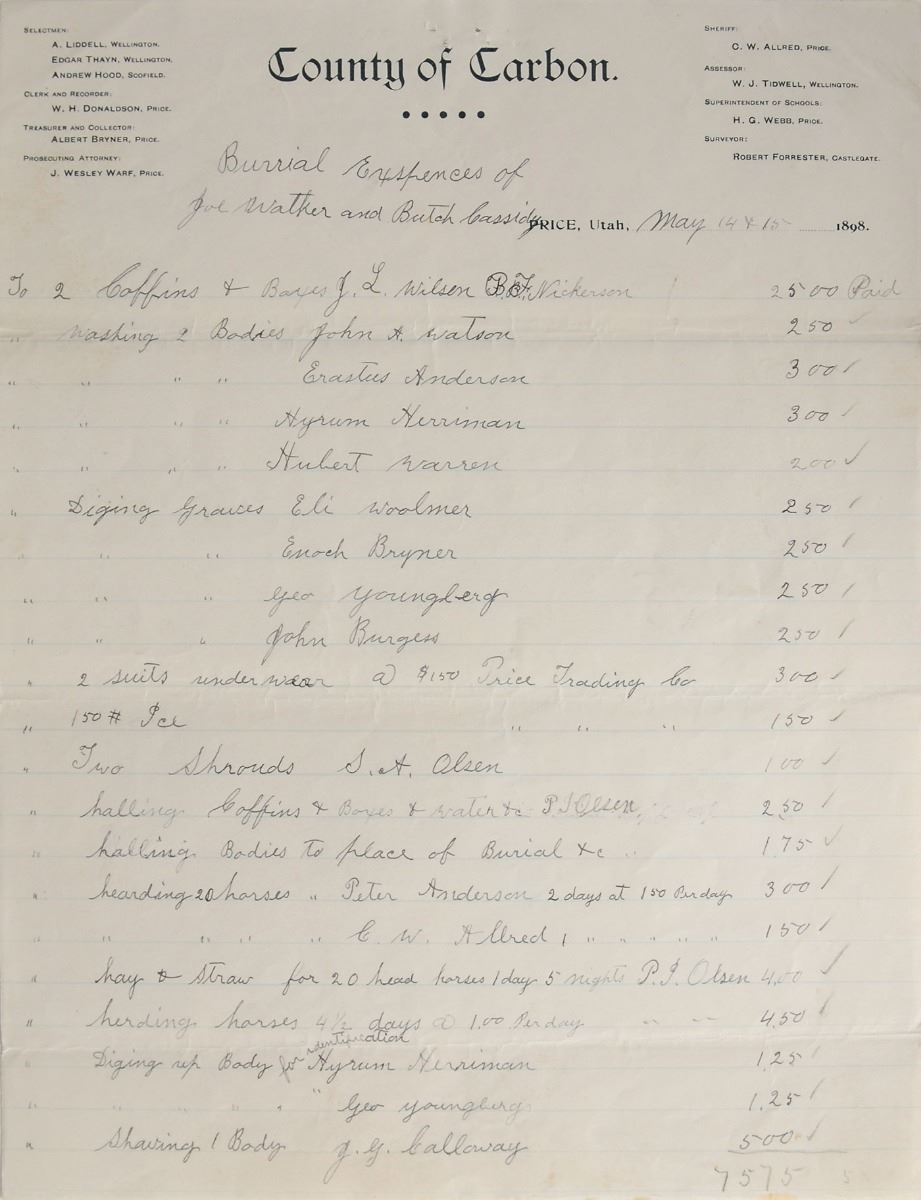 SELECTMEN:
A. LIDDELL, WELLINGTON.
EDGAR THAYN, WELLINGTON.
ANDREW HOOD, SCOFIELD.
CLERK AND RECORDER:
W. H. DONALDSON, PRICE.
TREASURER AND COLLECTOR:
ALBERT BRYNER, PRICE.
PROSECUTING ATTORNEY:
J. WESLEY WARF, PRICE.
County of Carbon.
SHERIFF:
C. W. ALLRED, PRICE.
ASSESSOR:
W. J. TIDWELL, WELLINGTON.
SUPERINTENDENT OF SCHOOLS:
H. G. WEBB, PRICE.
SURVEYOR:
ROBERT FORRESTER, CASTLEGATE.
Burrial Exspences of
Joe Walher and Butch Cassidy
PRICE, Utah, May 14 & 15 1898.
To 2 Coffins & Boxes J. L. Wilsen B.F. Nickerson 25 00 Paid
" Washing 2 Bodies John A. Watson 2 50
" " " " Erastus Anderson 3 00 ✓
" " " " Hyrum Herriman 3 00 ✓
" " " " Hubert Warren 2 00 ✓
" Diging Graves Eli Woolmer 2 50 ✓
" " " Enoch Bryner 2 50 ✓
" " " Geo Youngberg 2 50 ✓
" " " John Burgess 2 50 ✓
" 2 suits underwear @ $1 50 Price Trading Co 3 00 ✓
" 150 # Ice " " " 1 50 ✓
" Two Shrouds S. A. Olsen 1 00 ✓
" halling Coffins & Boxes & water &c P I Olsen 2 50 ✓
" halling Bodies to place of Burial &c " 1 75 ✓
" hearding 20 horses " Peter Anderson 2 days at 1 50 Per day 3 00 ✓
" " " " C. W. Allred 1 " " " " 1 50 ✓
" hay & Straw for 20 head horses 1 day 5 nights P. I. Olsen 4.00 ✓
" herding horses 4 1/2 days @ 1.00 Per day " " 4.50 ✓
" Diging up Body for identification Hyrum Herriman 1.25 ✓
" " " " " Geo Youngberg 1.25 ✓
" Shaving 1 Body J. G. Calloway 5 00 ✓
75 75